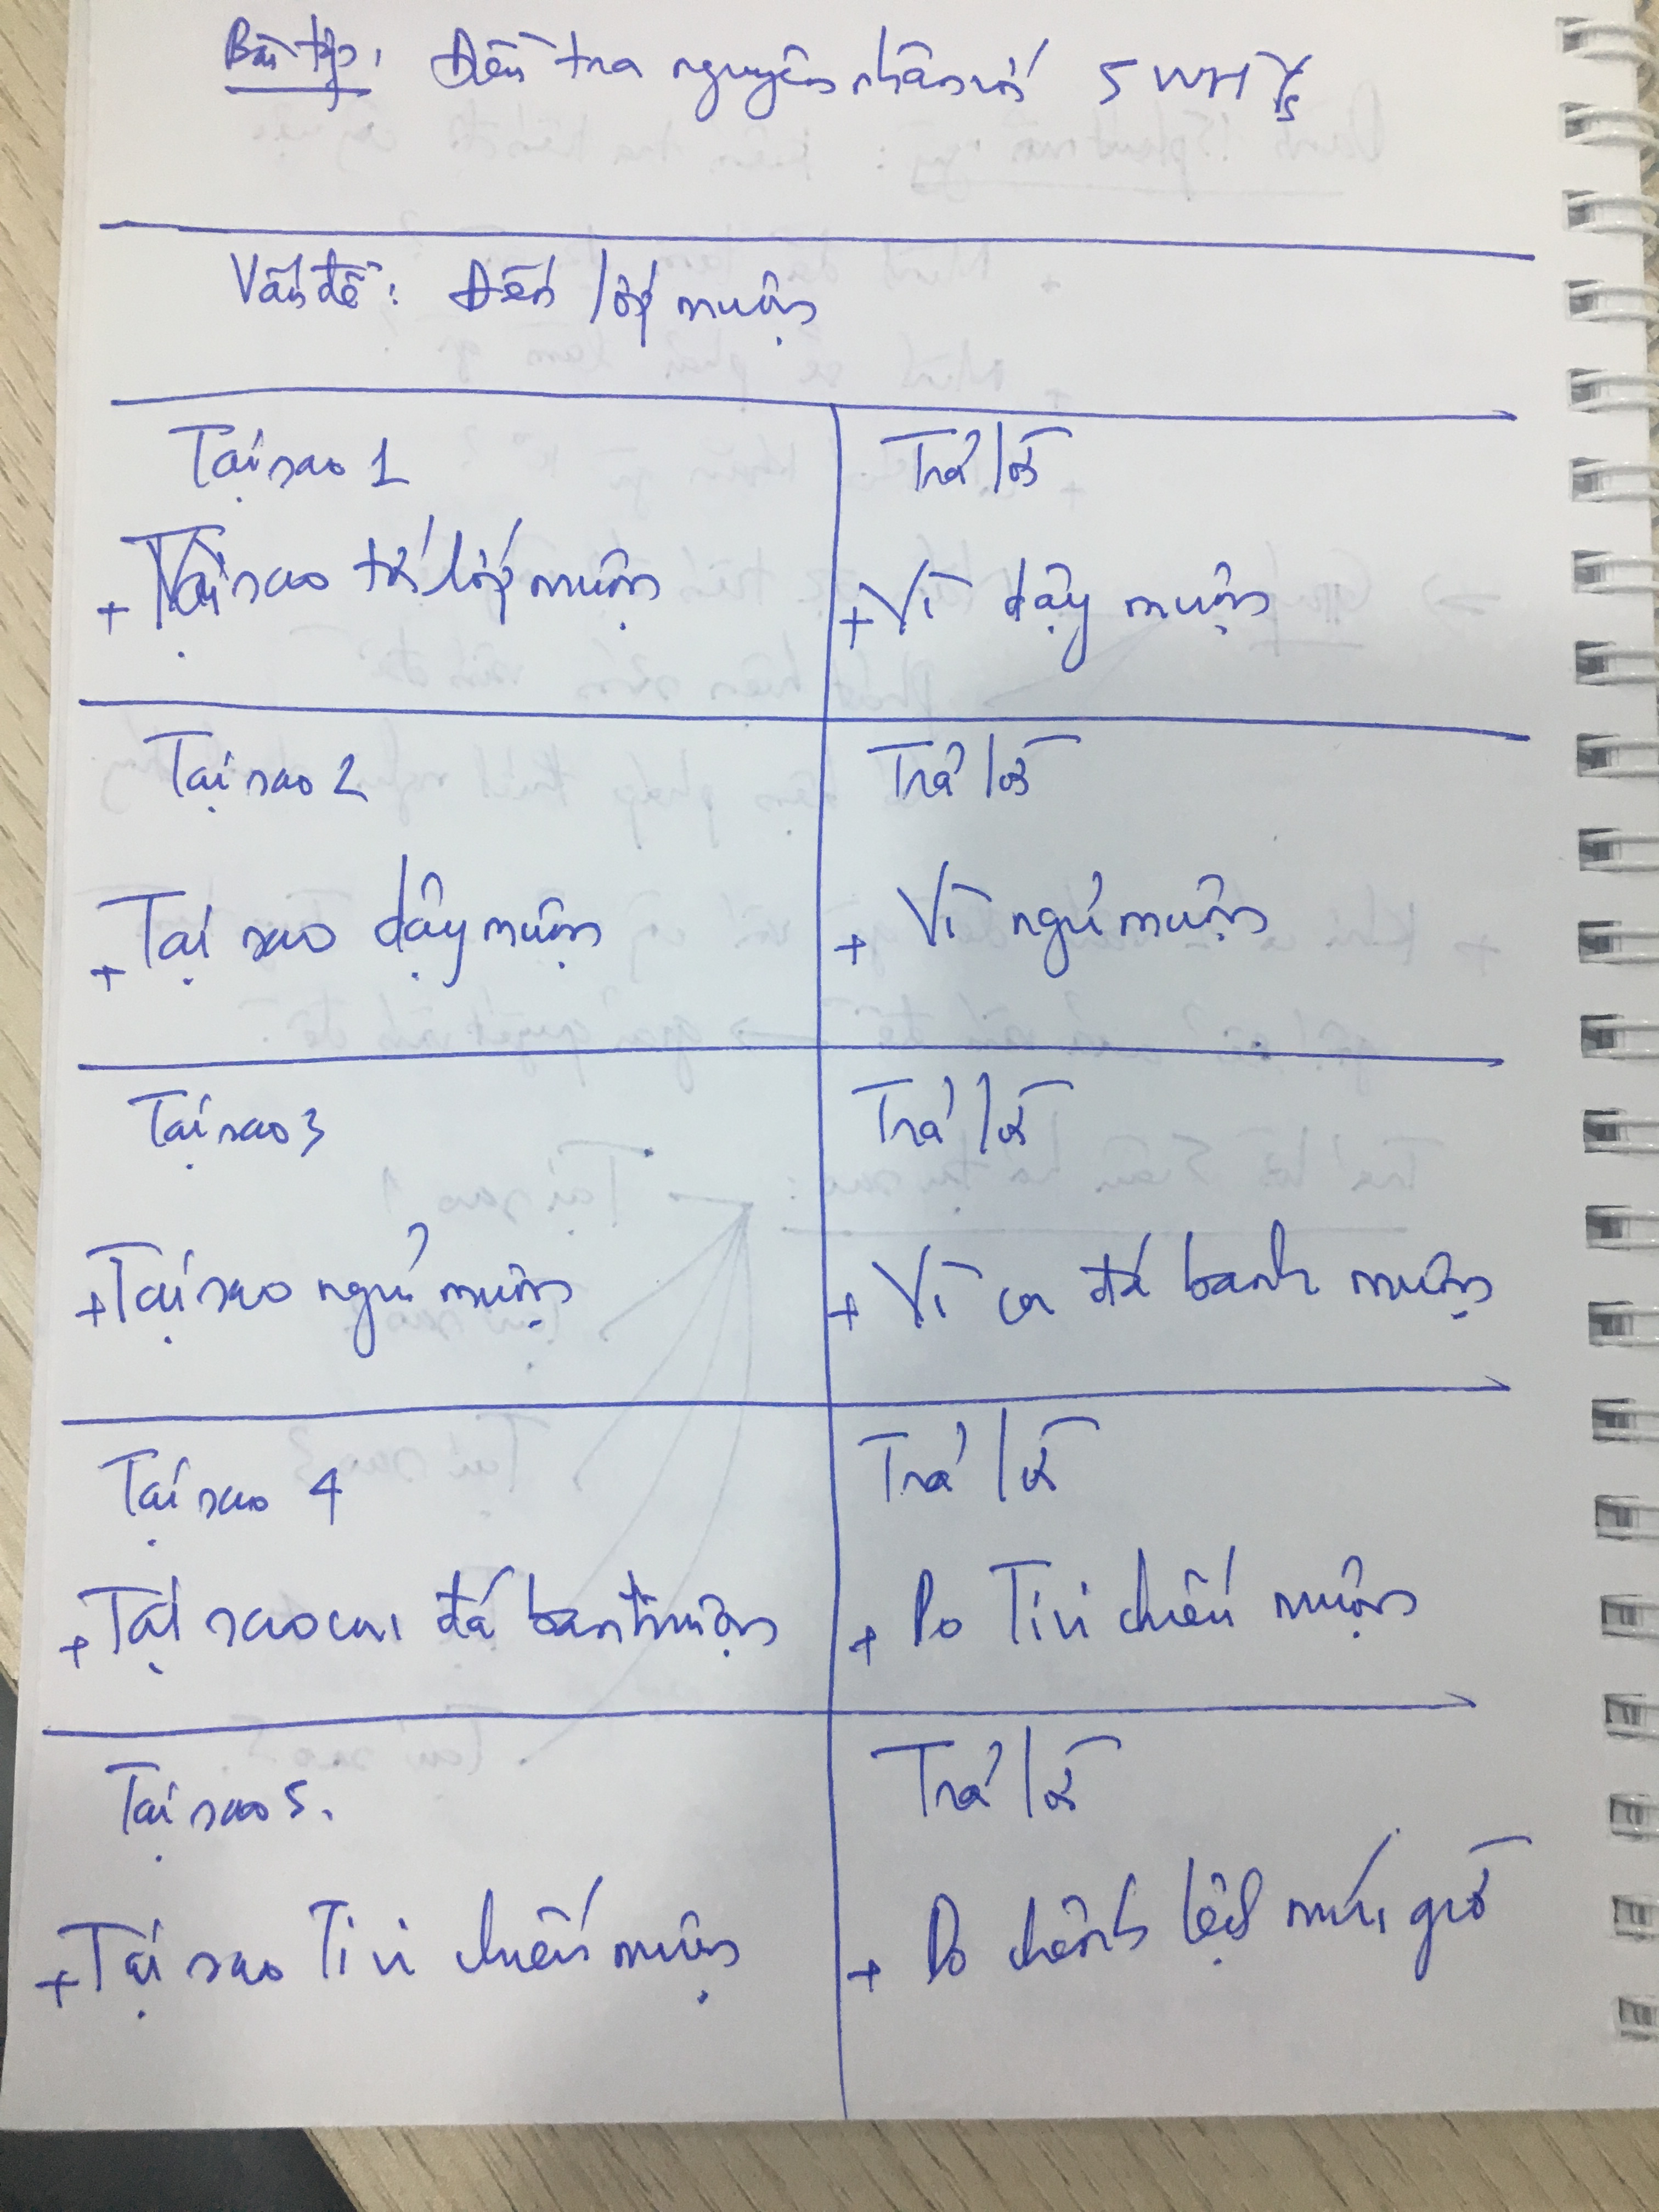 Bài tập: Điều tra nguyên nhân với 5 WHYs
Vấn đề: Đến lớp muộn
Tại sao 1
Trả lời
+ Tại sao tới lớp muộn
+ Vì dậy muộn
Tại sao 2
Trả lời
+ Tại sao dậy muộn
+ Vì ngủ muộn
Tại sao 3
Trả lời
+ Tại sao ngủ muộn
+ Vì coi đá banh muộn
Tại sao 4
Trả lời
+ Tại sao coi đá banh muộn
+ Do Ti vi chiếu muộn
Tại sao 5.
Trả lời
+ Tại sao Ti vi chiếu muộn
+ Do chênh lệch múi giờ